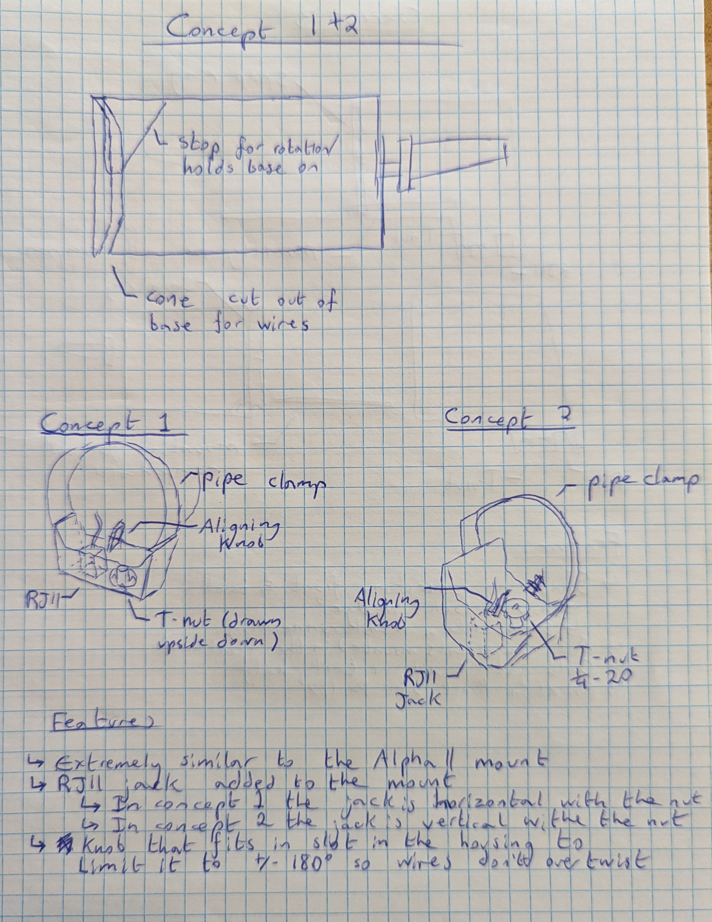 Concept 1+2
stop for rotation
holds base on
cone cut out of
base for wires
Concept 1
pipe clamp
Aligning
Knob
RJ11
T-nut (drawn
upside down)
Concept 2
pipe clamp
Aligning
Knob
RJ11
Jack
T-nut
1/4-20
Features
↳ Extremely similar to the Alpha II mount
↳ RJ11 jack added to the mount
↳ In concept 1 the jack is horizontal with the nut
↳ In concept 2 the jack is vertical withe the nut
↳ Knob that fits in slot in the housing to
Limit it to +/- 180° so wires don't over twist